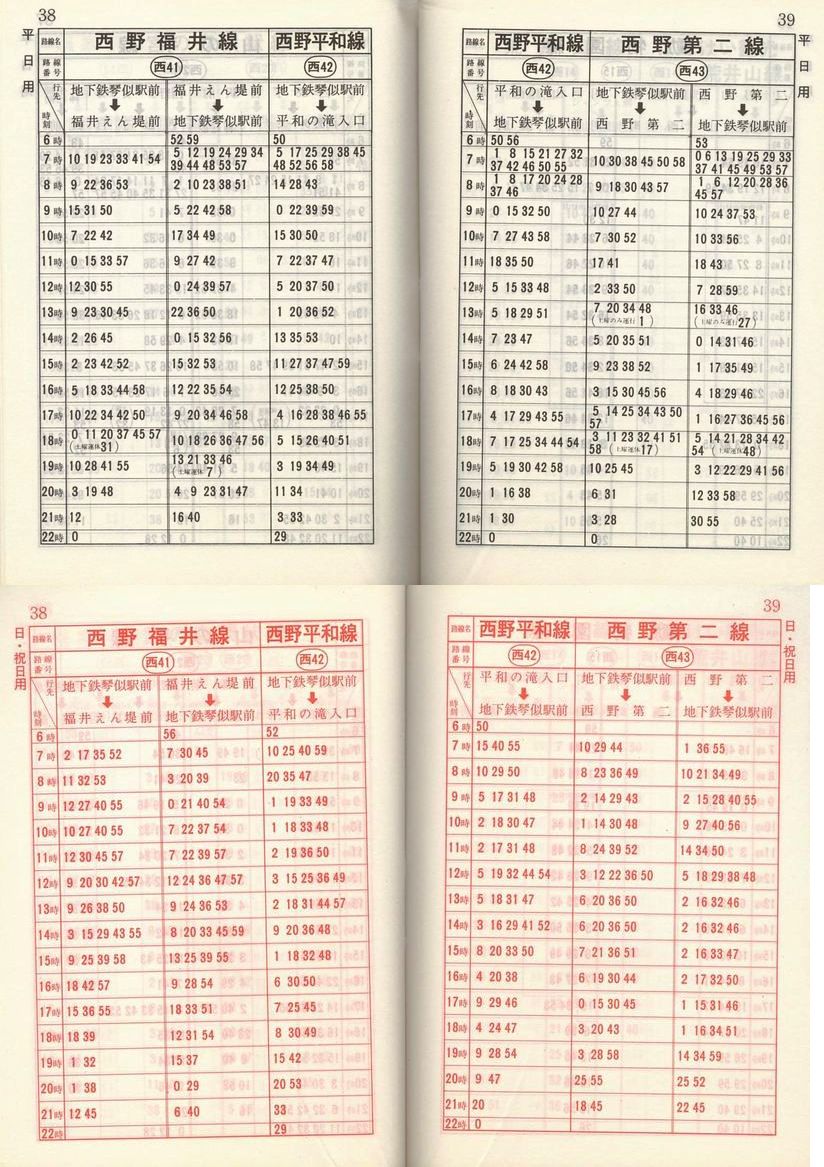 38
平日用
路線名 西野福井線 西野平和線
路線番号 西41 西42
行先 時刻 地下鉄琴似駅前 ↓ 福井えん堤前 福井えん堤前 ↓ 地下鉄琴似駅前 地下鉄琴似駅前 ↓ 平和の滝入口
6時 52 59 50
7時 10 19 23 33 41 54 5 12 19 24 29 34 39 44 48 53 57 5 17 25 29 38 45 48 52 56 58
8時 9 22 36 53 2 10 23 38 51 14 28 43
9時 15 31 50 5 22 42 58 0 22 39 59
10時 7 22 42 17 34 49 15 30 50
11時 0 15 33 57 9 27 42 7 22 37 47
12時 12 30 55 0 24 39 57 5 20 37 50
13時 9 23 30 45 22 36 50 1 20 36 52
14時 2 26 45 0 15 32 56 13 35 53
15時 2 23 42 52 15 32 53 11 27 37 47 59
16時 5 18 33 44 58 12 22 35 54 12 25 38 50
17時 10 22 34 42 50 9 20 34 46 58 4 16 28 38 46 55
18時 0 11 20 37 45 57 (土曜運休31) 10 18 26 36 47 56 5 15 26 40 51
19時 10 28 41 55 13 21 33 46 (土曜運休7) 3 19 34 49
20時 3 19 48 4 9 23 31 47 11 34
21時 12 16 40 3 33
22時 0 29
39
平日用
路線名 西野平和線 西野第二線
路線番号 西42 西43
行先 時刻 平和の滝入口 ↓ 地下鉄琴似駅前 地下鉄琴似駅前 ↓ 西野第二 西野第二 ↓ 地下鉄琴似駅前
6時 50 56 53
7時 1 8 15 21 27 32 37 42 46 50 55 10 30 38 45 50 58 0 6 13 19 25 29 33 37 41 45 49 53 57
8時 1 8 17 20 24 28 37 46 9 18 30 43 57 1 6 12 20 28 36 45 57
9時 0 15 32 50 10 27 44 10 24 37 53
10時 7 27 43 58 7 30 52 10 33 56
11時 18 35 50 17 41 18 43
12時 5 15 33 48 2 33 50 7 28 59
13時 5 18 29 51 7 20 34 48 (土曜のみ運行1) 16 33 46 (土曜のみ運行27)
14時 7 23 47 5 20 35 51 0 14 31 46
15時 6 24 42 58 9 23 38 52 1 17 35 49
16時 8 18 30 43 3 15 30 45 56 4 18 29 46
17時 4 17 29 43 55 5 14 25 34 43 50 57 1 16 27 36 45 56
18時 7 17 25 34 44 54 3 11 23 32 41 51 58 (土曜運休17) 5 14 21 28 34 42 54 (土曜運休48)
19時 5 19 30 42 58 10 25 45 3 12 22 29 41 56
20時 1 16 38 6 31 12 33 58
21時 1 30 3 28 30 55
22時 0 0
38
日・祝日用
路線名 西野福井線 西野平和線
路線番号 西41 西42
行先 時刻 地下鉄琴似駅前 ↓ 福井えん堤前 福井えん堤前 ↓ 地下鉄琴似駅前 地下鉄琴似駅前 ↓ 平和の滝入口
6時 56 52
7時 2 17 35 52 7 30 45 10 25 40 59
8時 11 32 53 3 20 39 20 35 47
9時 12 27 40 55 0 21 40 54 1 19 33 49
10時 10 27 40 55 7 22 37 54 1 18 33 48
11時 12 30 45 57 7 22 39 57 2 19 36 50
12時 9 20 30 42 57 12 24 36 47 57 3 15 25 36 49
13時 9 26 38 50 9 24 36 53 2 18 31 44 57
14時 3 15 29 43 55 8 20 33 45 59 9 20 36 48
15時 9 25 39 58 13 25 39 55 1 18 32 48
16時 18 42 57 9 28 54 6 30 50
17時 15 36 55 18 33 51 7 25 45
18時 18 39 12 31 54 8 30 49
19時 1 32 15 37 15 42
20時 1 38 0 29 20 53
21時 12 45 6 40 33
22時 29
39
日・祝日用
路線名 西野平和線 西野第二線
路線番号 西42 西43
行先 時刻 平和の滝入口 ↓ 地下鉄琴似駅前 地下鉄琴似駅前 ↓ 西野第二 西野第二 ↓ 地下鉄琴似駅前
6時 50
7時 15 40 55 10 29 44 1 36 55
8時 10 29 50 8 23 36 49 10 21 34 49
9時 5 17 31 48 2 14 29 43 2 15 28 40 55
10時 2 18 30 47 1 14 30 48 9 27 40 56
11時 2 17 31 48 8 24 39 52 14 34 50
12時 5 19 32 44 54 3 12 22 36 50 5 18 29 38 48
13時 5 18 31 47 6 20 36 50 2 16 32 46
14時 3 16 29 41 52 6 20 36 50 2 16 32 46
15時 8 20 33 50 7 21 36 51 2 16 33 47
16時 4 20 38 6 19 30 44 2 17 32 50
17時 9 29 46 0 15 30 45 1 15 31 46
18時 4 24 47 3 20 43 1 16 34 51
19時 9 28 54 3 28 58 14 34 59
20時 9 47 25 55 25 52
21時 20 18 45 22 45
22時 0